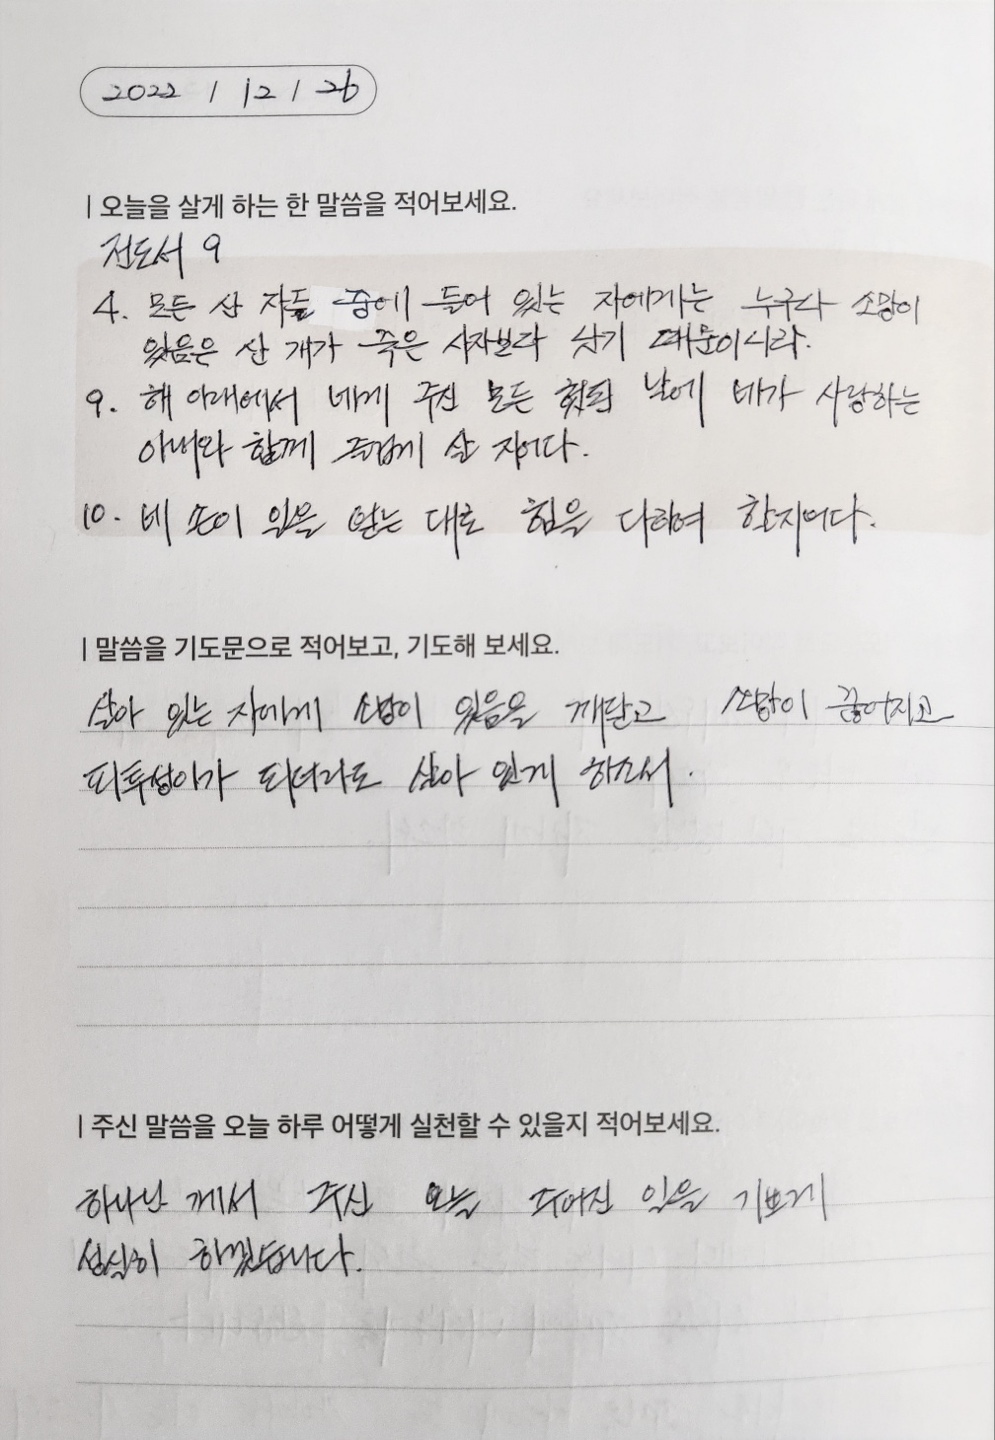 2022 / 12 / 26
| 오늘을 살게 하는 한 말씀을 적어보세요.
전도서 9
4. 모든 산 자들 중에 들어 있는 자에게는 누구나 소망이
있음은 산 개가 죽은 사자보다 낫기 때문이니라.
9. 해 아래에서 네게 주신 모든 헛된 날에 네가 사랑하는
아내와 함께 즐겁게 살 지어다.
10. 네 손이 일을 얻는 대로 힘을 다하여 할지어다.
| 말씀을 기도문으로 적어보고, 기도해 보세요.
살아 있는 자에게 소망이 있음을 깨닫고 소망이 끊어지고
피투성이가 되더라도 살아 있게 하소서.
| 주신 말씀을 오늘 하루 어떻게 실천할 수 있을지 적어보세요.
하나님 께서 주신 오늘 주어진 일을 기쁘게
성실히 하겠습니다.